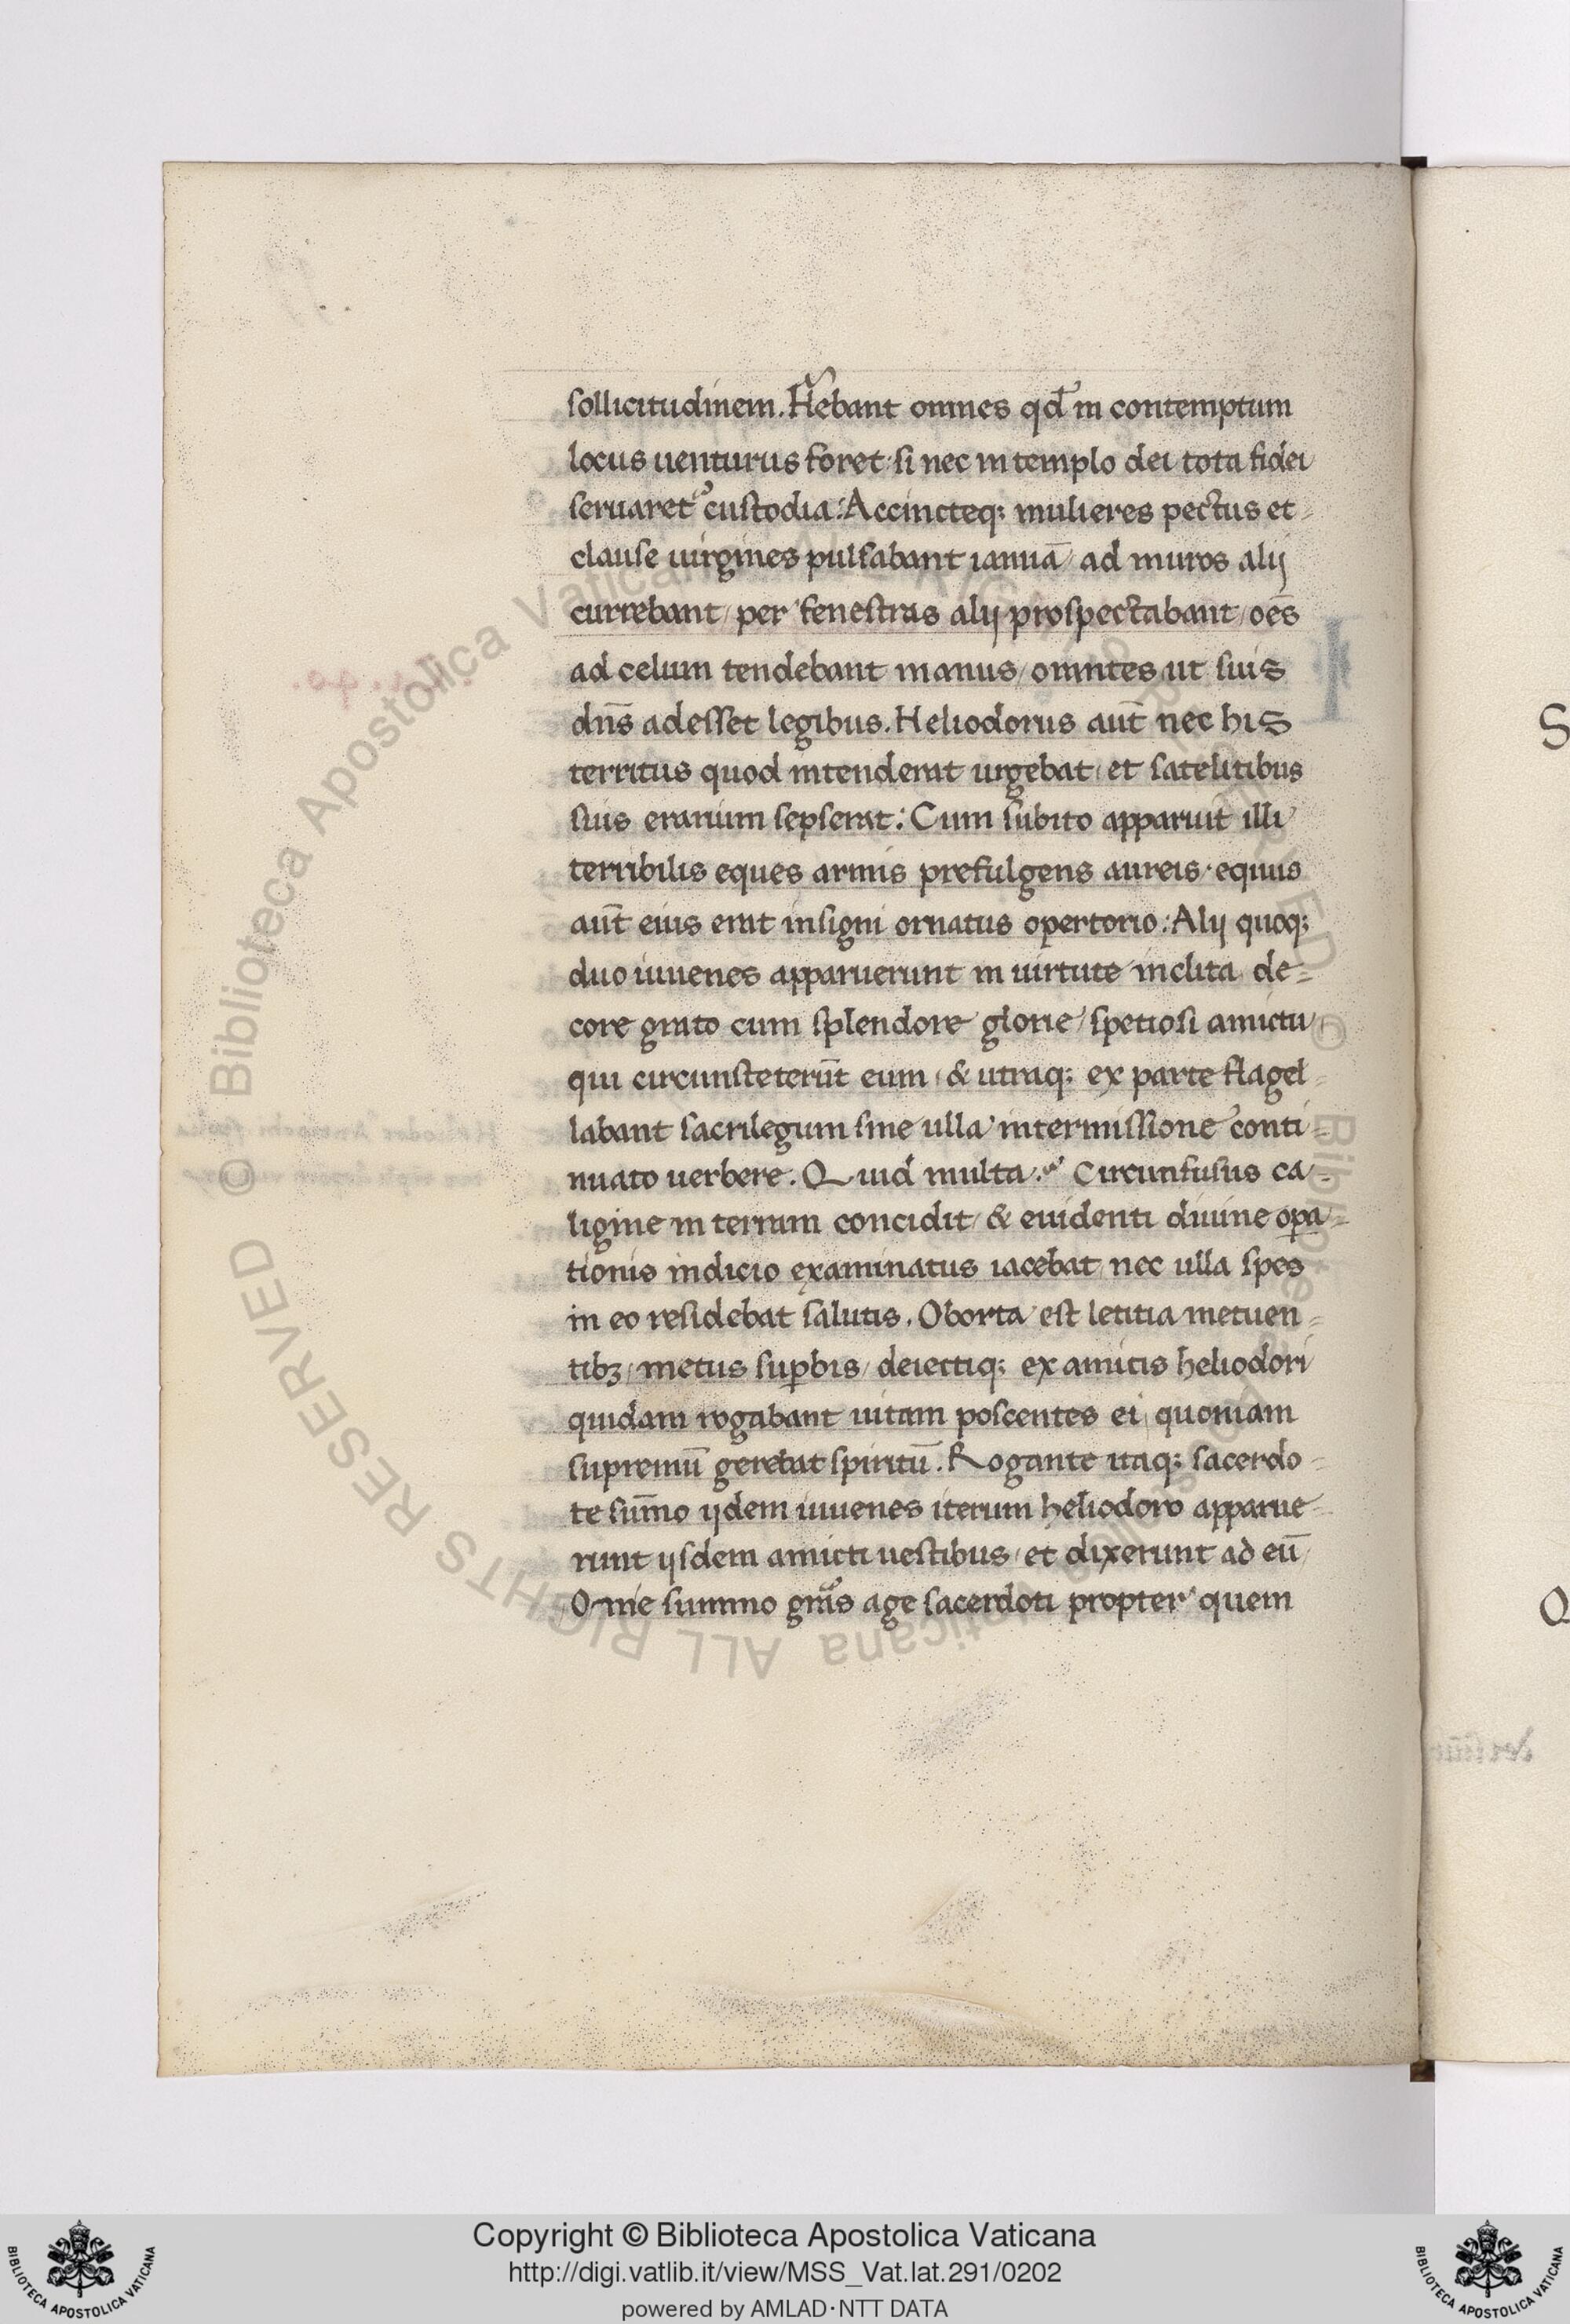 sollicitudinem. Flebant omnes qd̄ in contemptum
locus uenturus foret· si nec in templo dei tota fidei
seruaret᷑ custodia: Accincteq; mulieres pectus et
clause uirgines pulsabant ianuā/ ad muros alij
currebant/ per fenestras alij prospectabant/ oēs
ad celum tendebant manus/ orantes ut suis
dn̄s adesset legibus. Heliodorus aūt nec his
territus quod intenderat urgebat/ et satelitibus
suis erarium sepserat: Cum subito apparuit illi
terribilis eques armis prefulgens aureis· equus
aūt eius erat insigni ornatus opertorio: Alij quoq;
duo iuuenes apparuerunt in uirtute inclita de=
core grato cum splendore glorie/ spetiosi amictu/
qui circunsteterūt eum/ & utraq; ex parte flagel=
labant sacrilegum sine ulla intermissione conti=
nuato uerbere. Quid multa? Circunfusus ca=
ligine in terram concidit/ & euidenti diuine oꝑa=
tionis indicio exanimatus iacebat/ nec ulla spes
in eo residebat salutis. Oborta est letitia metuen=
tibꝫ/ metus suꝑbis/ deiectiq; ex amicis heliodori
quidam rogabant uitam poscentes ei/ quoniam
supremū gerebat spiritū. Rogante itaq; sacerdo=
te sūmo ijdem iuuenes iterum heliodoro apparue=
runt ijsdem amicti uestibus/ et dixerunt ad eū/
Onie summo grãs age sacerdoti propter quem
Copyright © Biblioteca Apostolica Vaticana
http://digi.vatlib.it/view/MSS_Vat.lat.291/0202
powered by AMLAD·NTT DATA